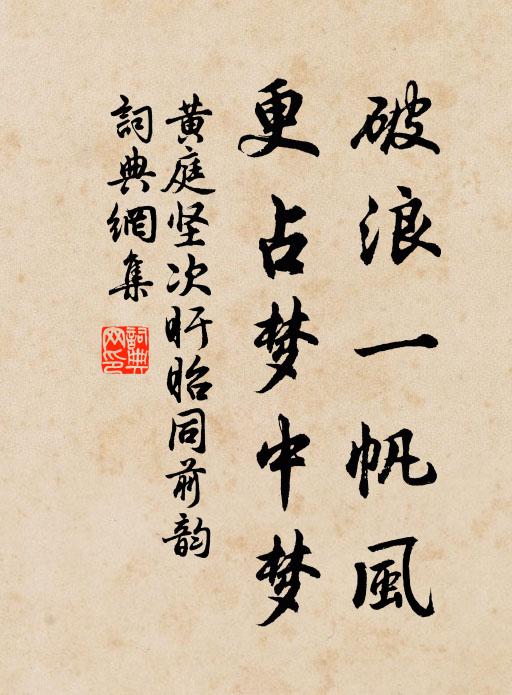 破浪一帆風
更占梦中梦
黄庭坚次盱眙同前韵
詞典網集
詞典网印